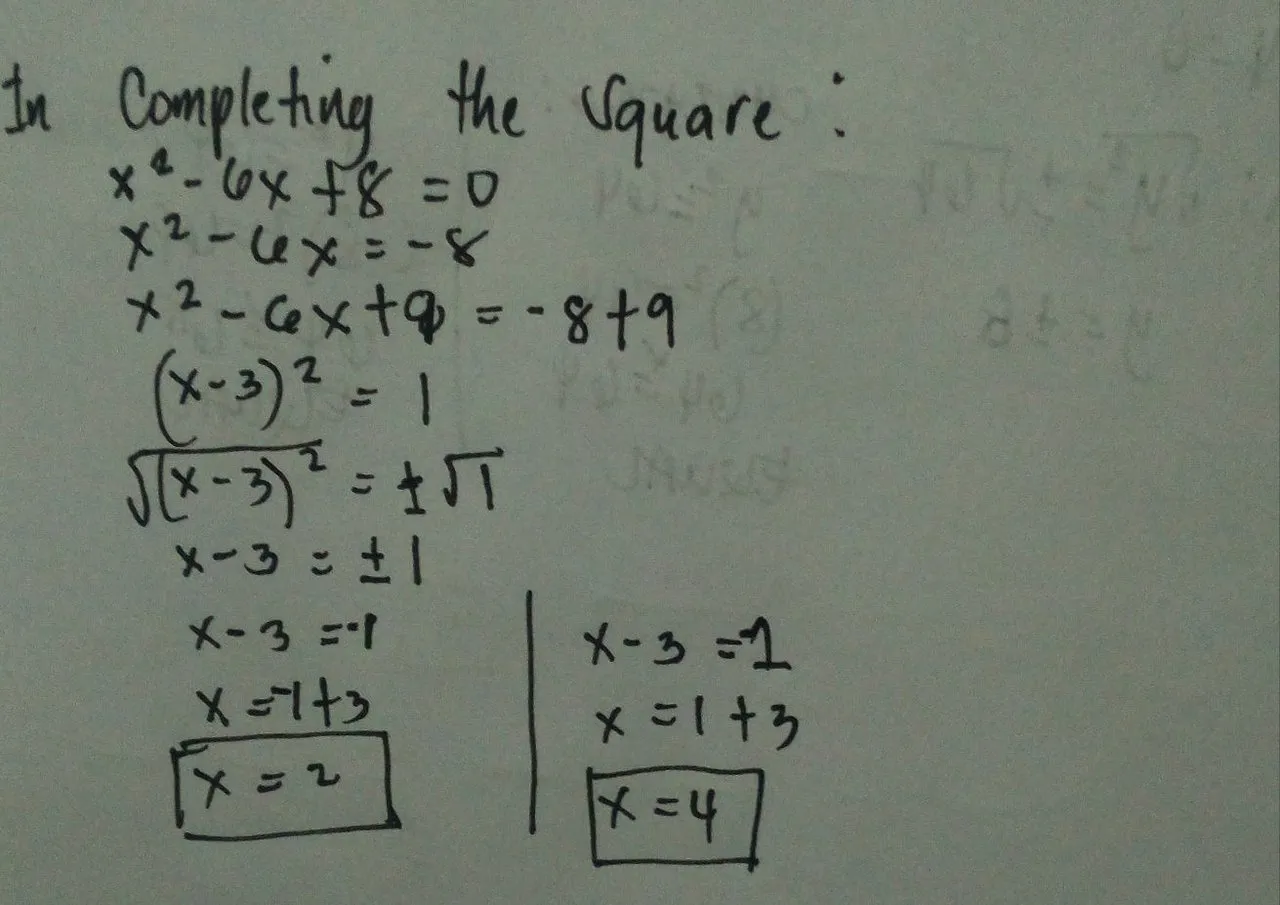 In Completing the Square :
x² - 6x + 8 = 0
x² - 6x = -8
x² - 6x + 9 = -8 + 9
(x - 3)² = 1
√(x - 3)² = ± √1
x - 3 = ± 1
x - 3 = -1
x = -1 + 3
x = 2
x - 3 = 1
x = 1 + 3
x = 4